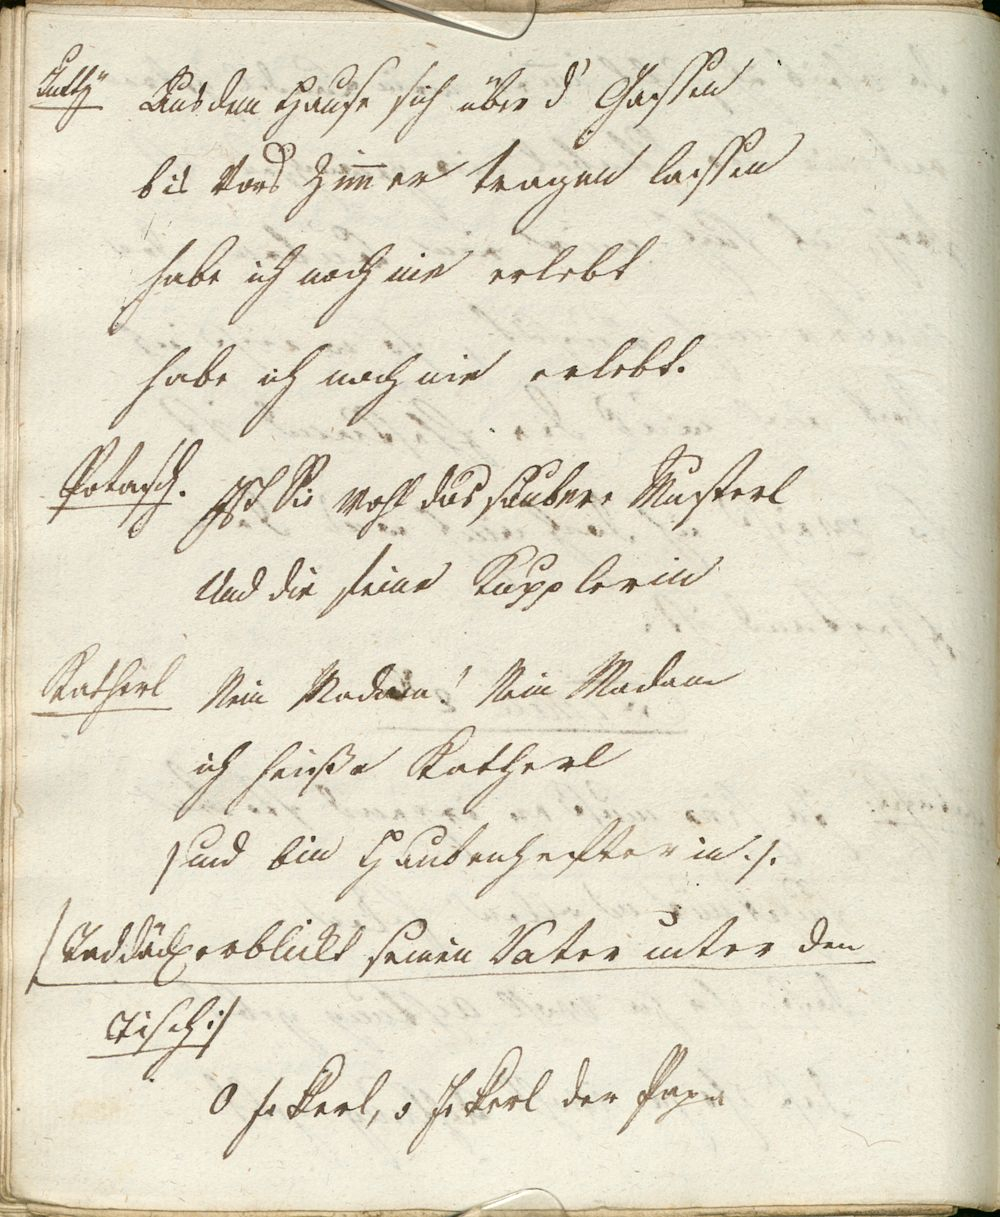 Aus dem Hause sich über d' Gassen
bis vors Zimmer tragen lassen
habe ich noch nie erlebt
habe ich noch nie erlebt.
Potasch. Ist Sie wohl das saubere Musterl
Und die feine Kupplerin
Katherl Nein Madam! Nein Madam
ich heiße Katherl
und bin Haubenhefterin ./.
/: Taddädl erblickt seinen Vater unter den
Tisch :/
O Jekerl, o Jekerl der Papa